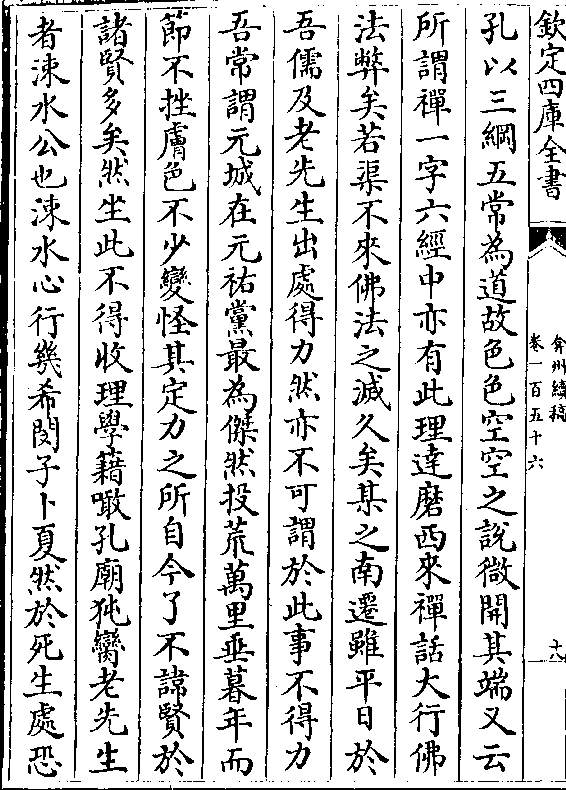 欽定四庫全書
弇州續稿
卷一百五十六
十八
孔以三綱五常為道故色色空空之說微開其端又云
所謂禪一字六經中亦有此理達磨西來禪話大行佛
法弊矣若渠不來佛法之滅久矣某之南遷雖平日於
吾儒及老先生出處得力然亦不可謂於此事不得力
吾常謂元城在元祐黨最為傑然投荒萬里垂暮年而
節不挫膚色不少變怪其定力之所自今了不諱賢於
諸賢多矣然坐此不得收理學籍噉孔廟㹠臠老先生
者涑水公也涑水心行幾希閔子卜夏然於死生處恐